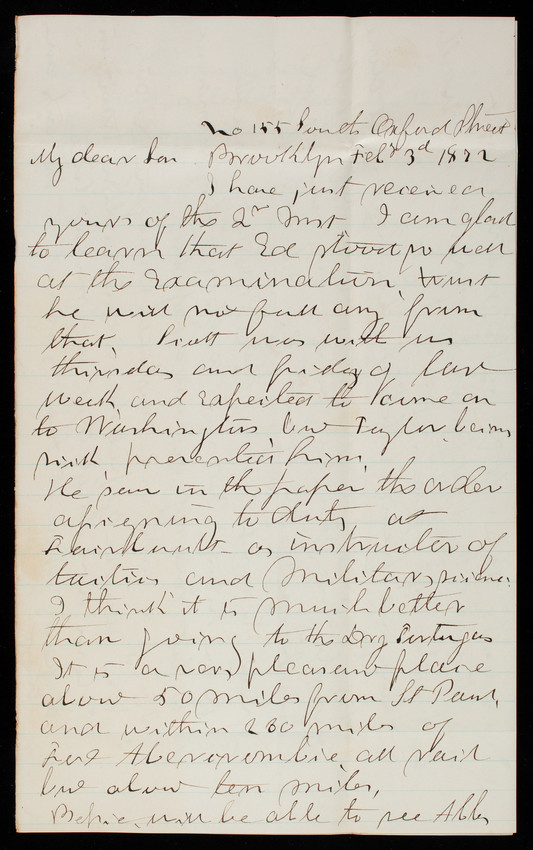 No 155 South Oxford Street
My dear Son Brooklyn Feby 3d 1872
I have just received
yours of the 2nd Inst I am glad
to learn that Ed stood so well
at the Examination, trust
he will not fall any from
that, Scott was with us
thursday and friday of last
week and expected to come on
to Washington but Taylor being
sick prevented him,
He saw in the paper the order
assigning to duty at
as instructor of
tactics and Military science
I think it is much better
than going to the Dry Tortugas
It is a very pleasant place
about 50 miles from St Paul,
and within 230 miles of
Fort Abercrombie, all rail
but about ten miles,
will be able to see